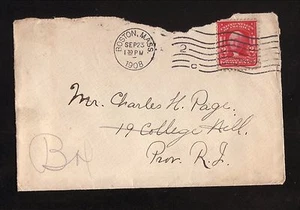 BOSTON, MASS.
SEP 23
1908
2
C
Mr. Charles H. Page.
19 College Hill.
Prov. R.I.